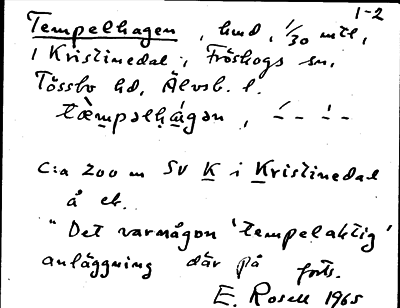 1-2
Tempelhagen, hmd, 1/30 mtl,
i Kristinedal, Fröskogs sn,
Tössbo hd, Älvsb. l.
c:a 200 m SV K i Kristinedal
å ek.
"Det var någon 'tempelaktig'
anläggning där på forts.
E. Rosell 1965